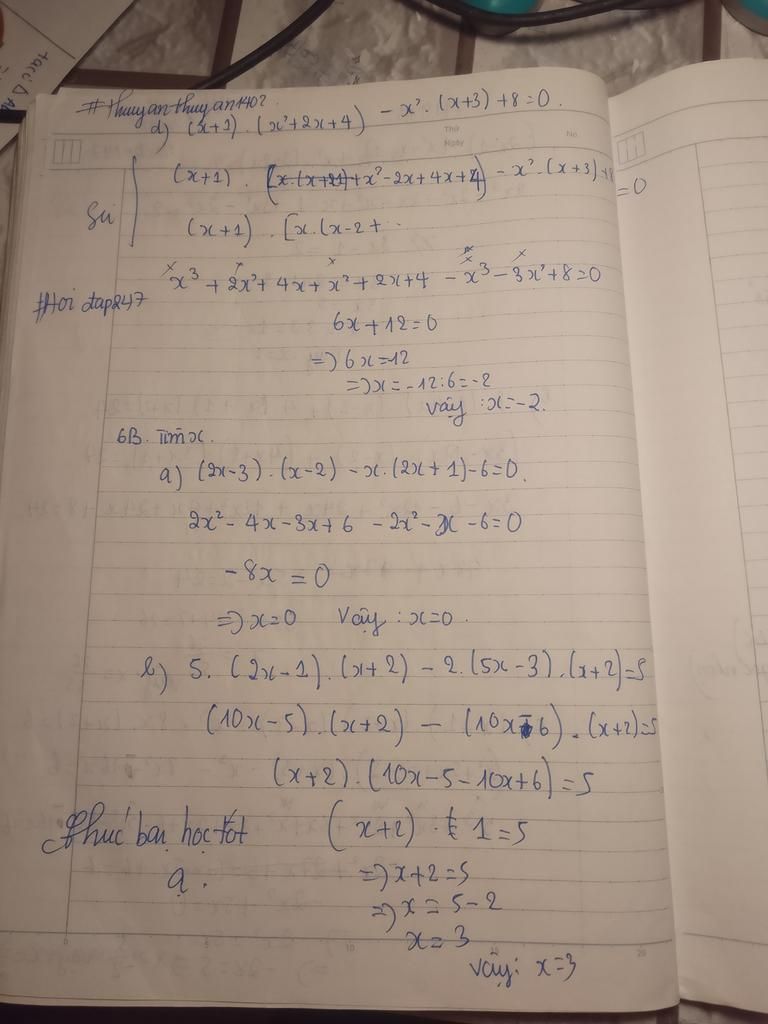 #thuyanthuyan1402
d) (x+1) . (x²+2x+4) - x² . (x+3) +8=0.
Thứ
Ngày
No.
(x+1) . (x.(x+21)+x²-2x+4x+4) - x² . (x+3)+8 =0
(x+1) . [x.(x-2+
x³ + 2x²+ 4x+x²+2x+4 -x³-3x²+8=0
#Hoi đap247
6x+12=0
=) 6x=12
=)x=-12:6=-2
Vậy :x=-2.
6B. Tìm x.
a) (2x-3).(x-2) -x.(2x+1)-6=0.
2x²-4x-3x+6 -2x²-x -6=0
-8x =0
=) x=0 Vậy : x=0.
b) 5. (2x-1).(x+2) -2.(5x-3).(x+2)=5
(10x-5).(x+2) - (10x-6).(x+2)=5
(x+2).(10x-5-10x+6)=5
Chúc bạn học tốt (x+2) . 1=5
ạ. =)x+2=5
=)x=5-2
x=3
Vậy: x=3